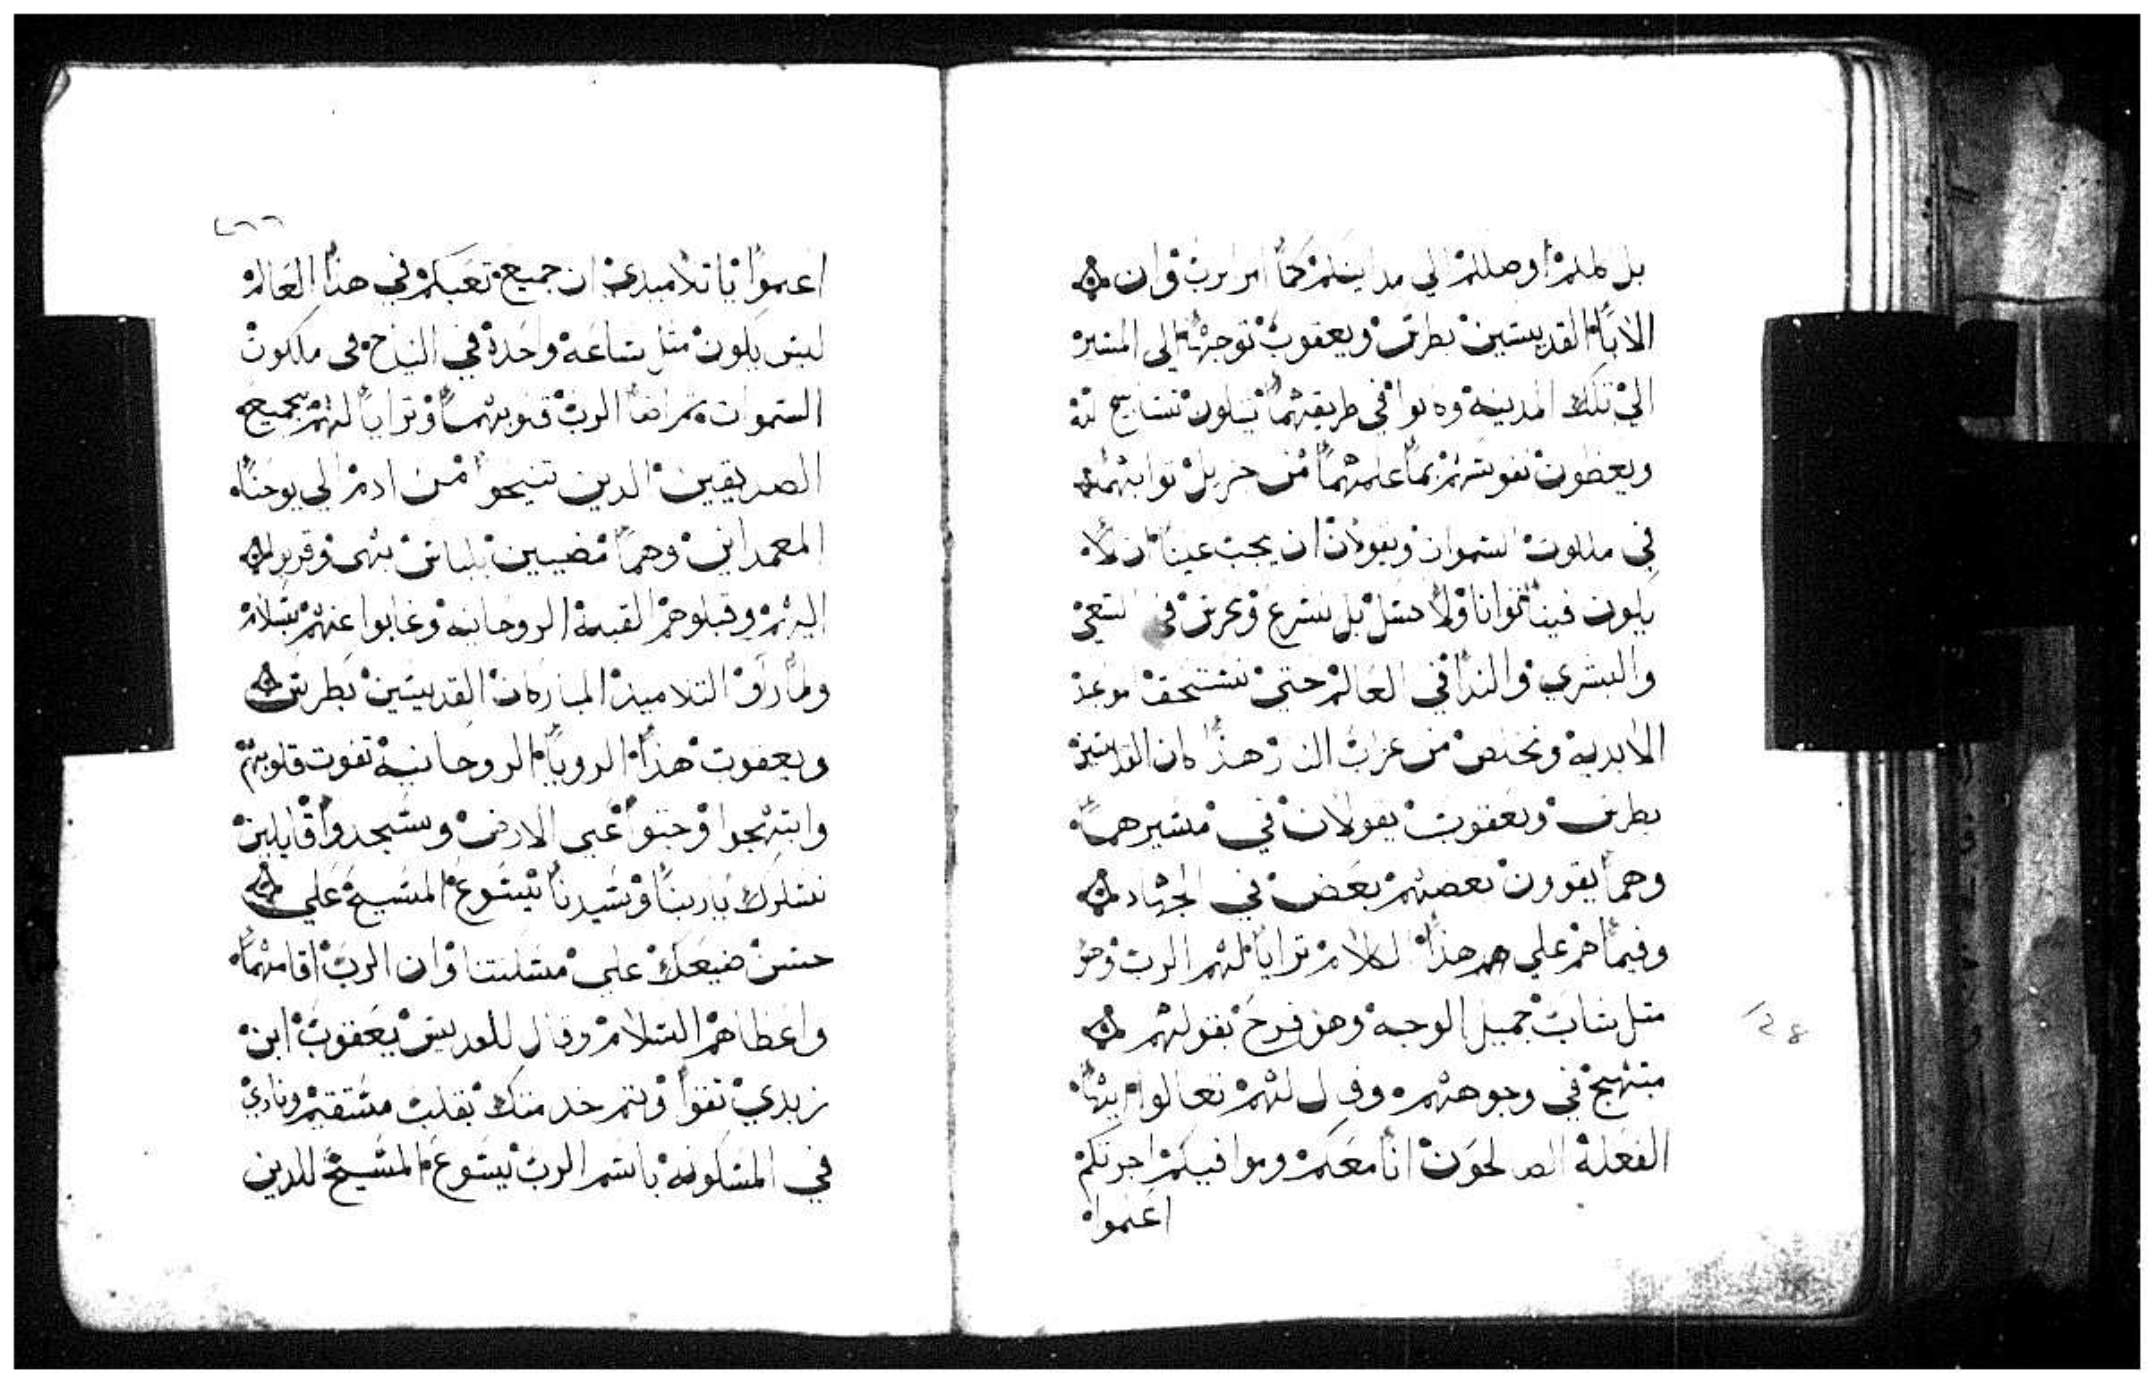 بل كلمكم اوصلكم الي مدا ينكم كما امر الرب وان
الابا القديسين بطرس ويعقوب توجها الى المسير
الي تلك المدينة وكانوا في طريقهما يتلون تسابيح لله
ويعظون نفوسهم بما علمهما من جزيل ثوابهما
في ملكوت السموات ويقولان ان يجب علينا ان لا
يكون فينا توانا ولا كسل بل نسرع ونحرص في السعي
والبشري والندا في العالم حتي نستحق موعد
الابدية ونخلص من عذاب النار هذا كان القديسين
بطرس ويعقوب يقولان في مسيرهما
وهما يقوون بعضهم بعض في الجهاد
وفيما هم علي هذا الكلام ترايا لهم الرب وهو
مثل شاب جميل الوجه وهو فرح بقولهم
مبتهج في وجوههم وقال لهم تعالوا ايها
الفعلة الصالحون انا معكم وموافيكم اجرتكم
اعلموا
٢٦٦
اعلموا يا تلاميدي ان جميع تعبكم في هذا العالم
ليس يكون مثل ساعة واحدة في النياح في ملكوت
السموات الرب قلوبهما وترايا لهم جميع
الصديقين الدين تنيحوا من ادم الي يوحنا
المعمداني وهما مضيين بلباس بهى وقربوا
اليهم وقبلوهم القبلة الروحانيه وغابوا عنهم بسلام
ولما راو التلاميد المباركان القديسين بطرس
ويعقوب هذا الرويا الروحانيه تقوت قلوبهم
وابتهجوا وجتوا علي الارض وسجدوا قايلين
نشكرك ياربنا وسيدنا يسوع المسيح علي
حسن ضيعك علي مسكنتنا وان الرب اقامهما
واعطاهم السلام وقال للقديس يعقوب ابن
زبدي تقوا وتمم خدمتك بقلب مستقيم ونادي
في المسكونه باسم الرب يسوع المسيح للدين